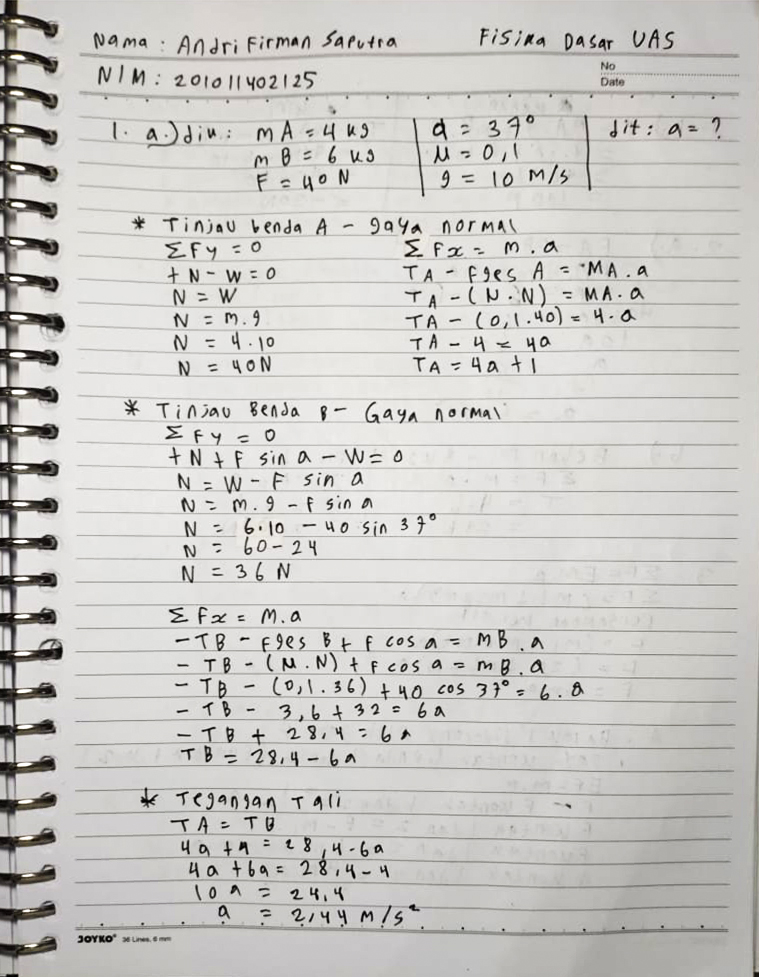 Nama : Andri Firman Saputra Fisika Dasar UAS
NIM : 201011402125
No
Date
1. a.) dik : mA = 4 kg | α = 37° | dit : a = ?
mB = 6 kg | μ = 0,1
F = 40 N | g = 10 m/s
* Tinjau benda A - gaya normal
ΣFy = 0
+N - W = 0
N = W
N = m.g
N = 4.10
N = 40N
ΣFx = m.a
TA - Fges A = MA.a
TA - (N.N) = MA.a
TA - (0,1.40) = 4.a
TA - 4 = 4a
TA = 4a + 1
* Tinjau Benda B - Gaya normal
ΣFy = 0
+N + F sin a - W = 0
N = W - F sin a
N = m.g - F sin a
N = 6.10 - 40 sin 37°
N = 60 - 24
N = 36 N
ΣFx = M.a
- TB - Fges B + F cos a = MB.a
- TB - (μ.N) + F cos a = mB.a
- TB - (0,1.36) + 40 cos 37° = 6.a
- TB - 3,6 + 32 = 6a
- TB + 28,4 = 6a
TB = 28,4 - 6a
* Tegangan Tali
TA = TB
4a + 4 = 28,4 - 6a
4a + 6a = 28,4 - 4
10 a = 24,4
a = 2,44 m/s²
JOYKO® 36 Lines, 6 mm